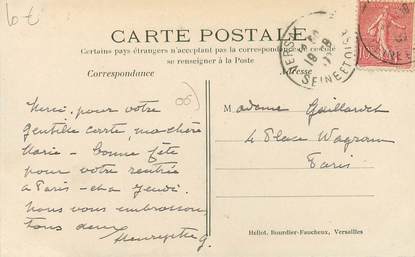 60t
CARTE POSTALE
Certains pays étrangers n'acceptant pas la correspondance de ce côté
se renseigner à la Poste
Correspondance
Adresse
SEINE ET OISE
Merci, pour votre
gentille carte, ma chère
Marie - Bonne fête
pour votre rentrée
à Paris - et à Jeudi.
Nous vous embrassons
tous deux
Henriette G.
Madame Gaillardet
4 Place Wagram
Paris
Hellot, Bourdier-Faucheux, Versailles